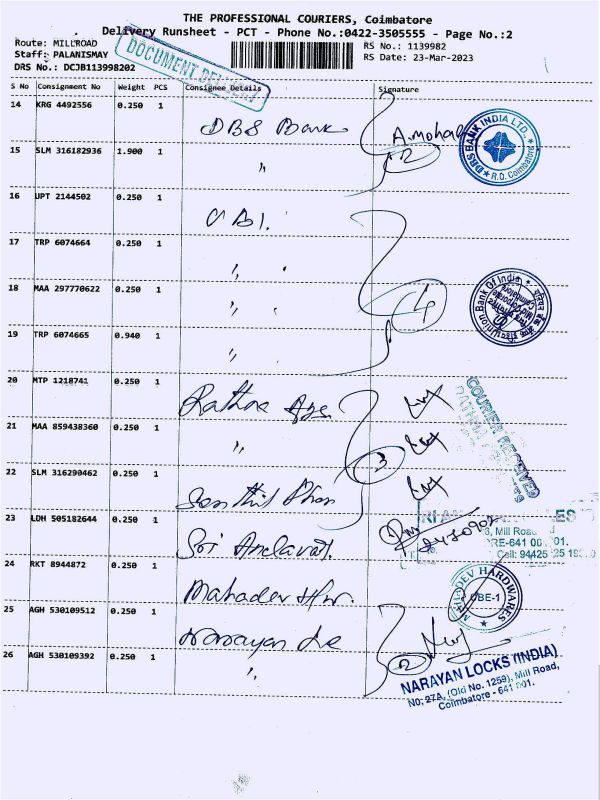 THE PROFESSIONAL COURIERS, Coimbatore
Delivery Runsheet - PCT - Phone No.:0422-3505555 - Page No.:2
Route: MILLROAD
RS No.: 1139982
Staff: PALANISMAY
RS Date: 23-Mar-2023
DRS No.: DCJB113998202
DOCUMENT
S No Consignment No Weight PCS Consignee Details Signature
14 KRG 4492556 0.250 1 DBS Bank A.Moha
DBS BANK INDIA LTD., R.O. Coimbatore
15 SLM 316182936 1.900 1 " 2
16 UPT 2144502 0.250 1 UBI.
17 TRP 6074664 0.250 1 "
18 MAA 297770622 0.250 1 " 4
Union Bank Of India
19 TRP 6074665 0.940 1 "
20 MTP 1218741 0.250 1 Rathna
COURIER RECEIVED
21 MAA 859438360 0.250 1 " 3
22 SLM 316290462 0.250 1 Senthil
23 LDH 505182644 0.250 1 Sri
Mill Road
RE-641 001.
Cell: 94425
24 RKT 8944872 0.250 1 Mahadev H/w.
HARDWARES
CBE-1
25 AGH 530109512 0.250 1 Narayan
26 AGH 530109392 0.250 1 " 2
NARAYAN LOCKS (INDIA)
No. 27A, (Old No. 1259), Mill Road,
Coimbatore - 641 001.